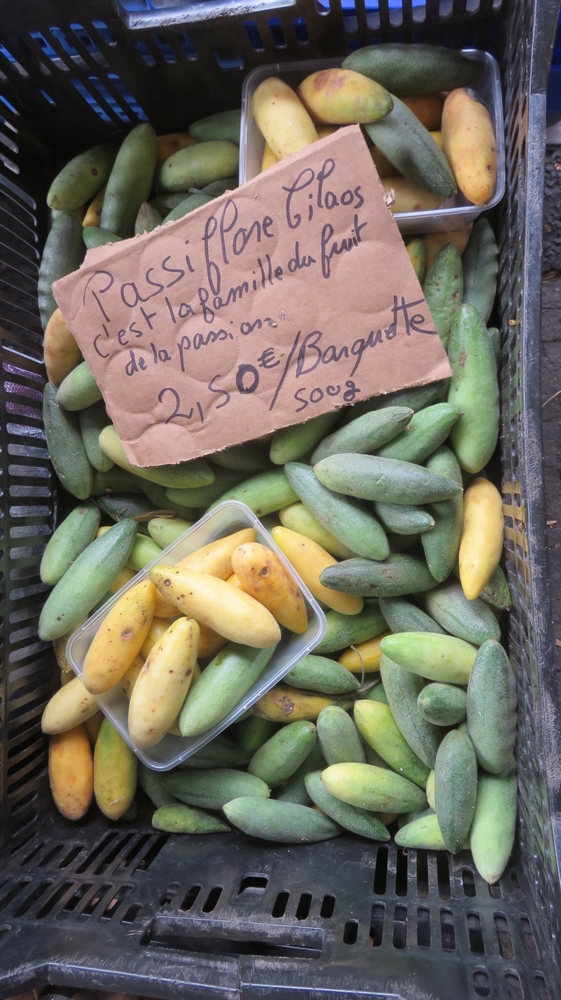 Passiflore Cilaos
c'est la famille du fruit
de la passion.
2,50€/Barquette
500g